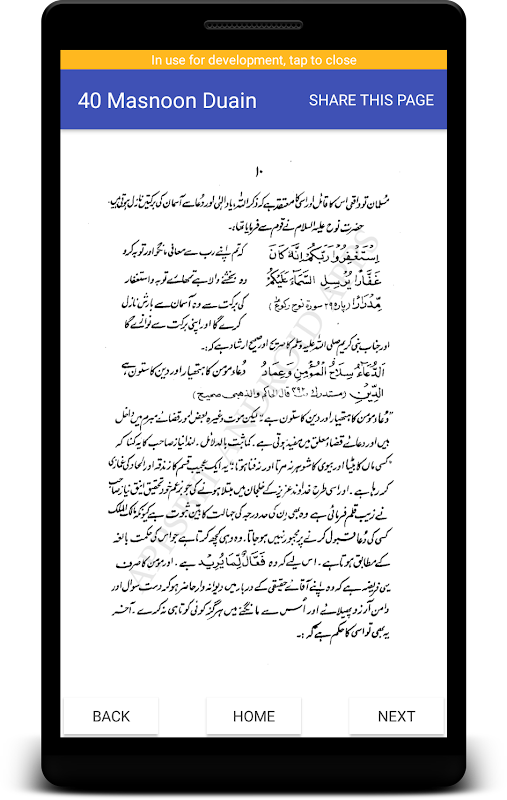 In use for development, tap to close
40 Masnoon Duain
SHARE THIS PAGE
۱۰
مسلمان تو واقعی اس کا قائل اور اسی کا معتقد ہے کہ ذکر اللہ، یاد الٰہی اور دُعا سے آسمان کی برکتیں نازل ہوتی ہیں.
حضرت نوح علیہ السلام نے قوم سے فرمایا تھا:
اِسْتَغْفِرُوْا رَبَّكُمْ اِنَّهٗ كَانَ کہ تم اپنے رب سے معافی مانگو اور توبہ کرو
غَفَّارًا يُرْسِلِ السَّمَآءَ عَلَيْكُمْ وہ بخشنے والا ہے تمہارے توبہ و استغفار
مِّدْرَارًا (پارہ ۲۹ سورۃ نوح رکوع ۱) کی برکت سے وہ آسمان سے بارش نازل
کرے گا اور اپنی برکت سے نوازے گا
اور جناب نبی کریم صلی اللہ علیہ وسلم کا صریح اور صحیح ارشاد ہے کہ:۔
اَلدُّعَآءُ سِلَاحُ الْمُؤْمِنِ وَعِمَادُ دعاء مومن کا ہتھیار اور دین کا ستون ہے
الدِّيْنِ (مستدرک قال الحاکم والذھبی صحیح)
"دُعاء مومن کا ہتھیار اور دین کا ستون ہے" لیکن موت وغیرہ بعض امور قضائے مبرم میں داخل
ہیں اور دعا نے قضاء معلق میں مفید ہوتی ہے۔ کما ثبت بالدلائل۔ لہٰذا نیاز صاحب کا یہ کہنا کہ
"کسی ماں کا بیٹا اور بیوی کا شوہر نہ مرتا اور نہ فنا ہوتا" یہ ایک عجیب قسم کا زندقہ اور الحاد کی غمازی
کر رہا ہے۔ اور اسی طرح خداوند عزیز کے خلجان میں مبتلا ہونے کی جو بزعم خود تحقیق انیق نیاز صاحب
نے زیب قلم فرمائی ہے وہ بھی ان کی حد درجہ کی جہالت کا بین ثبوت ہے کیونکہ مالک الملک
کسی کی دعا قبول کرنے پر مجبور نہیں ہو جاتا۔ وہ وہی کچھ کرتا ہے جو اس کی حکمت بالغہ
کے مطابق ہوتا ہے۔ اس لیے کہ وہ فَعَّالٌ لِّمَا يُرِيْد ہے۔ اور مومن کا صرف
یہی فریضہ ہے کہ وہ اپنے آقائے حقیقی کے دربار میں دیوانہ وار حاضر ہو کر دست سوال اور
دامن آرزو پھیلائے اور اُس سے مانگنے میں ہرگز کوئی کوتاہی نہ کرے۔ آخر
یہ بھی تو اسی کا حکم ہے کہ:۔
APPSOFT ANDROID APPS
BACK
HOME
NEXT